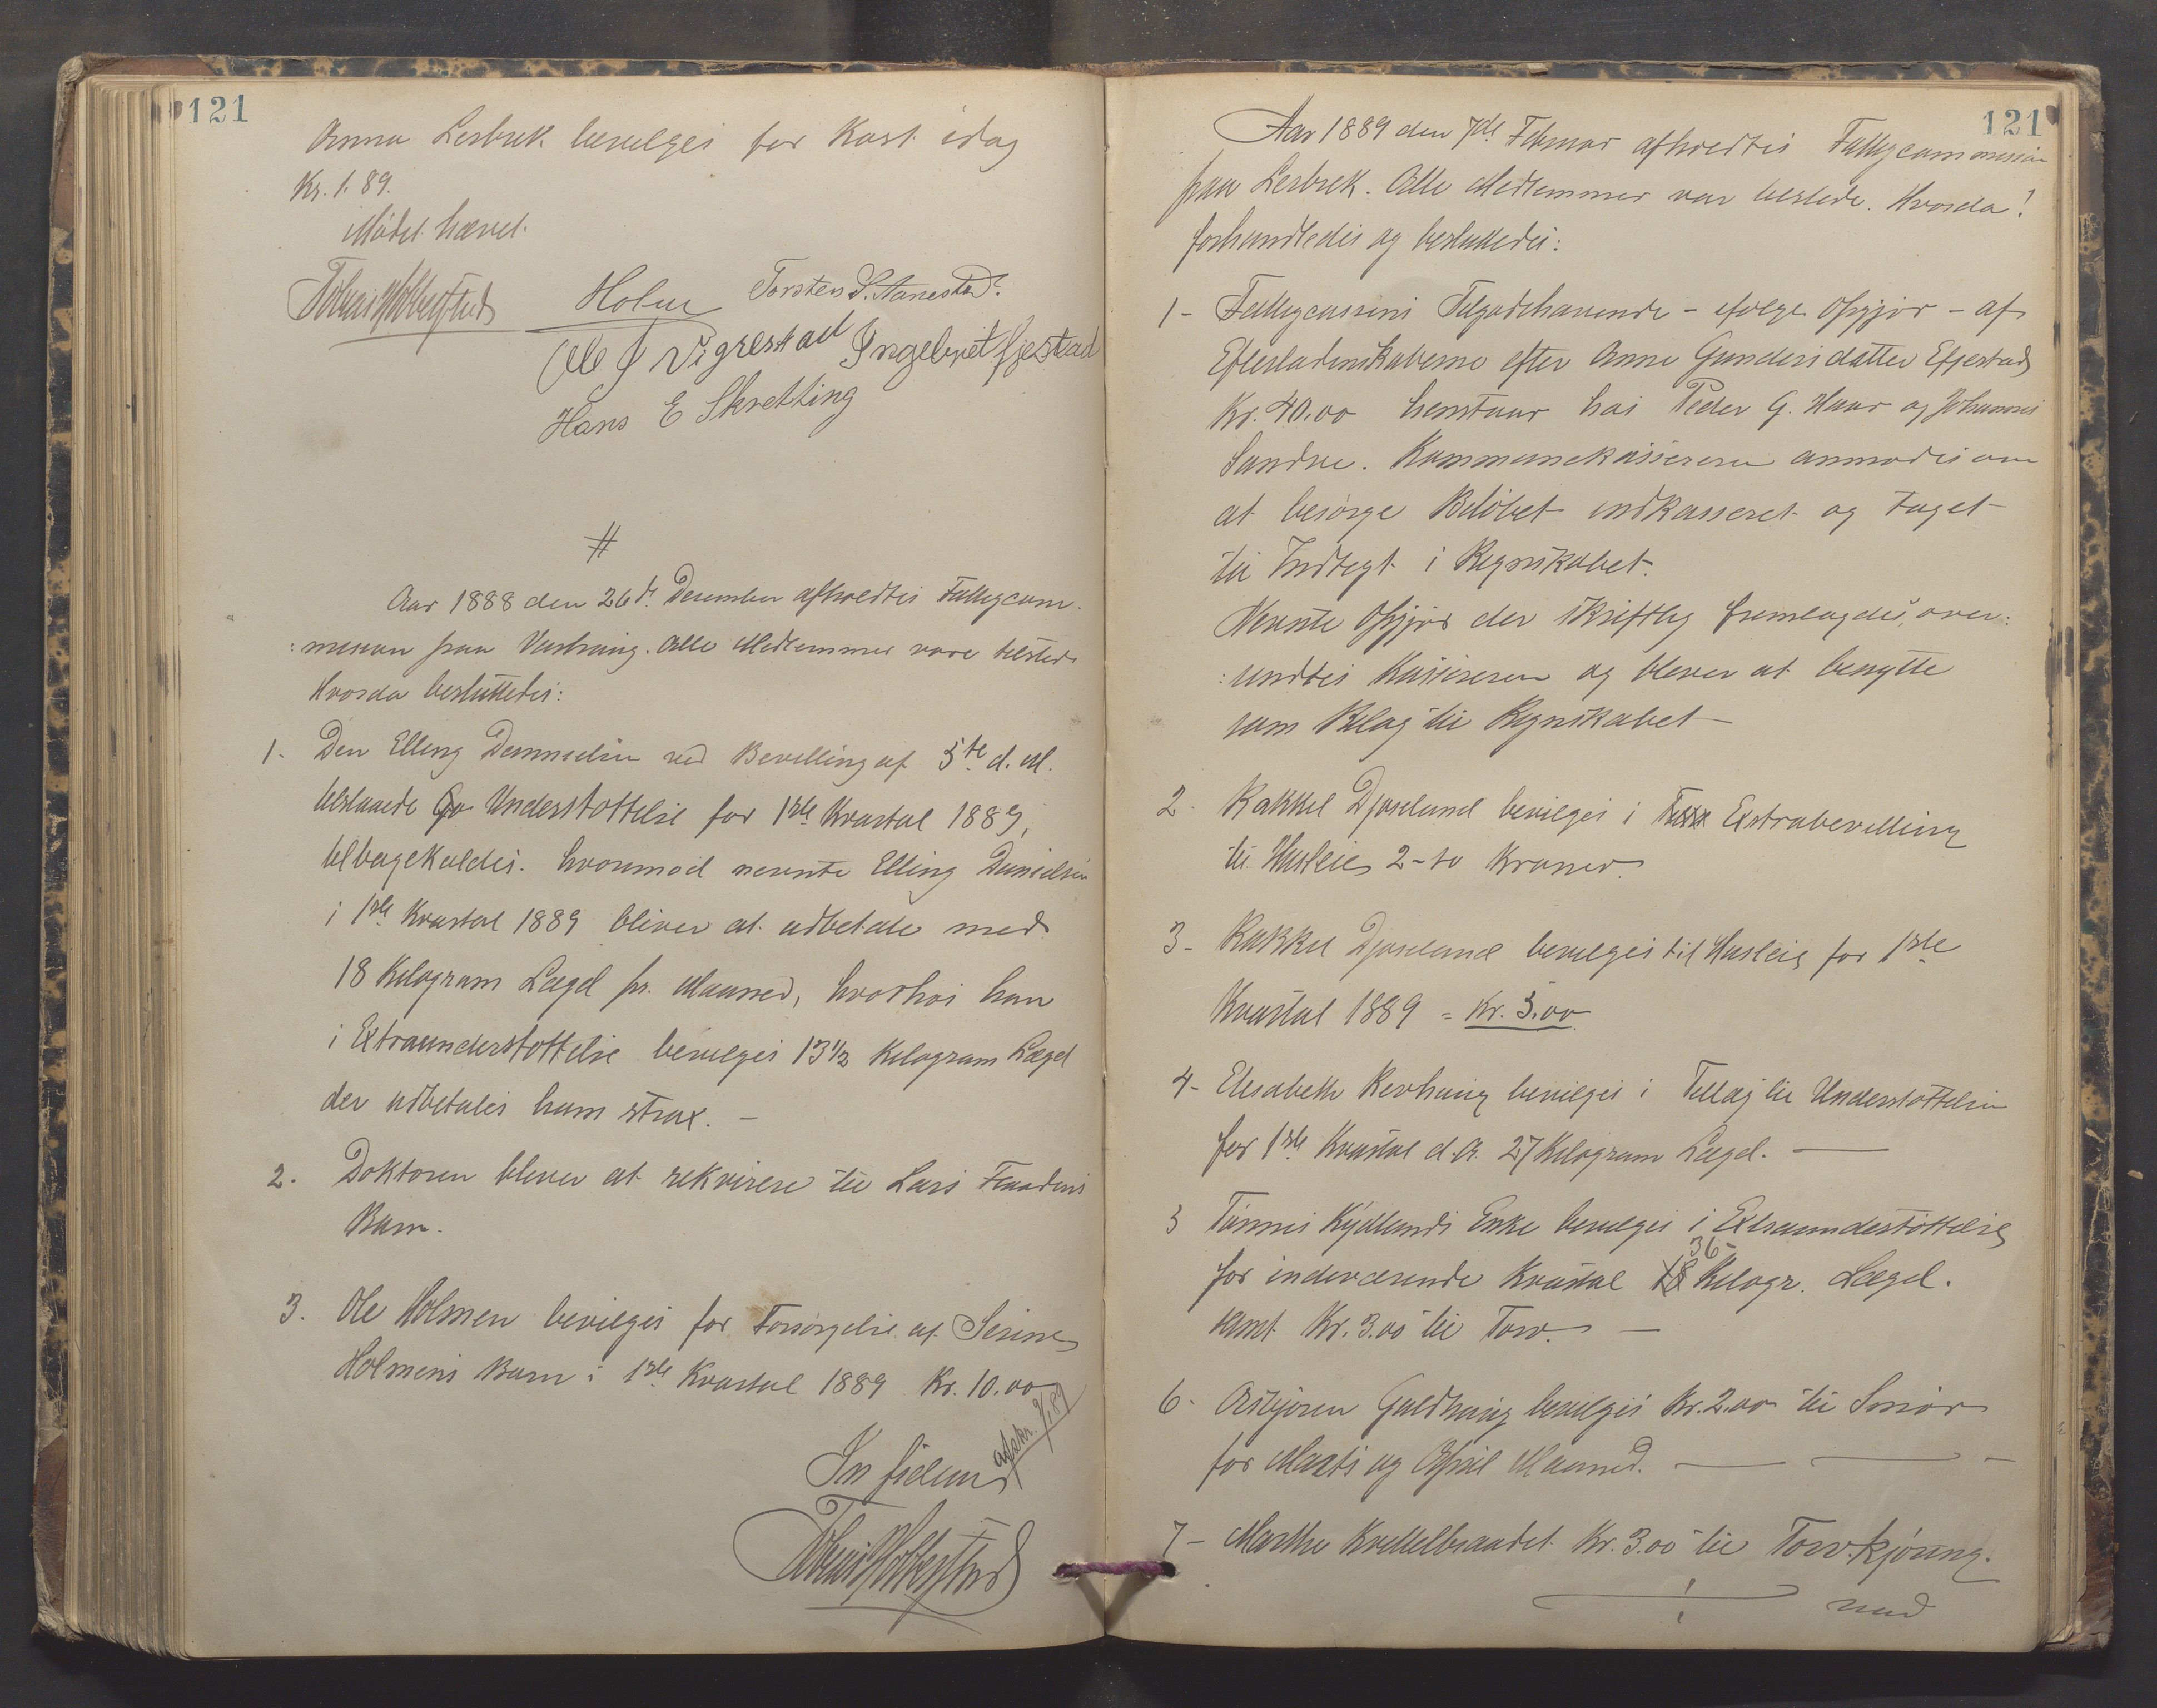 121
Anna Lerbrek bevilges for Kost idag
Kr. 1.89.
Mødet hævet.
Holm Torsten S. Aanestad.
Ole J Vigrestad Ingebret Efjestad
Hans E Skretting
#
Aar 1888 den 26de Desember afholdtes Fattigcom-
:mision paa Varhaug. Alle Medlemmer vare tilstede
Hvorda besluttedes:
1. Den Elling Danielsen ved Bevilling af 5te d. M.
tilstaaede Understøttelse for 1ste Kvartal 1889,
tilbagekaldes. hvorimod nevnte Elling Danielsen
i 1ste Kvartal 1889 bliver at udbetale med
18 Kilogram Lægd pr. Maaned, hvorhos han
i Extraunderstøttelse bevilges 13 1/2 Kilogram Lægd
der udbetales ham strax. —
2. Doktoren bliver at rekvirere til Lars
Barn.
3. Ole Holmen bevilges for Forsørgelse af Serine
Holmens Barn i 1ste Kvartal 1889 Kr. 10.00
afskr. 9/1 89
121
Aar 1889 den 7de Februar afholdtes Fattigcommission
paa Lerbrek. Alle Medlemmer var tilstede. Hvorda!
forhandledes og besluttedes:
1- Fattigcassens Tilgodehavende - ifølge Opgjør - af
Efterladenskaberne efter Anne Gundersdatter Efjestad
Kr. 40.00 henstaar hos Peder G. Haar og Johannes
Sandve. Kommunekassereren anmodes om
at besørge Beløbet indkasseret og taget
til Indtegt i Regnskabet.
Nevnte Opgjør der skriftlig fremlagdes, over:
:sendtes Kassereren og bliver at benytte
som Bilag til Regnskabet —
2. Rakkel Djuseland bevilges i Extrabevilling
til Husleie 2 - to Kroner
3- Rakkel Djuseland bevilges til Husleie for 1ste
Kvartal 1889 = Kr. 5.00
4- Elisabeth Revhaug bevilges i Tillæg til Understøttelsen
for 1ste Kvartal d.A. 27 Kilogram Lægd. —
5 Tønnes Kydlands Enke bevilges i Extraunderstøttelse
for indeværende Kvartal 36- Kilogr. Lægd.
samt Kr. 3.00 til Torv. —
6- Asbjøren Guldhaug bevilges Kr. 2.00 til Smør
for Marts og April Maaned. — — —
7- Marthe Kvellebraadet Kr. 3.00 til Torvkjøring.